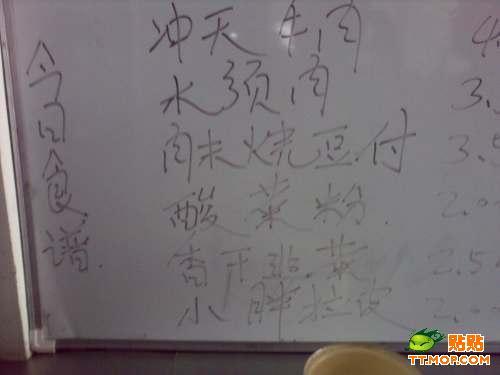 今日食谱.
冲天牛肉 4
水须肉 3.
肉未烧豆.付 3.5
酸菜粉. 2.0
香干韭.菜 2.5
小胖拉皮 2.0
贴贴
TT.MOP.COM